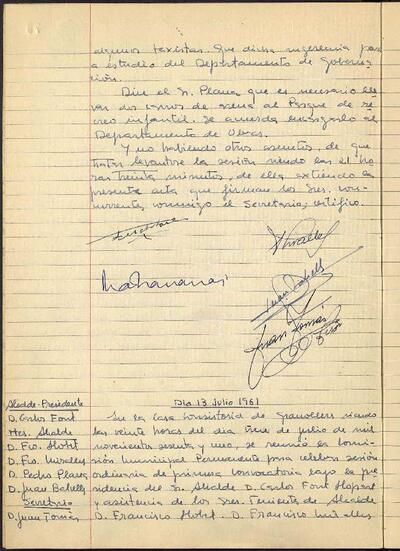 algunos taxistas. Que dicha sugerencia pase
a estudio del Departamento de Goberna-
ción.
Dice el Sr. Plana que es necesario lle-
var dos carros de arena al Parque de re-
creo infantil. Se acuerda encargarlo al
Departamento de Obras.
Y no habiendo otros asuntos, de que
tratar levantose la sesión siendo las 21 ho-
ras treinta minutos, de ella extiendo la
presente acta que firman los Sres. con-
currentes conmigo el Secretario, certifico.
Juan Babells
Juan Tomás
Día 13 Julio 1961
Alcalde-Presidente
D. Carlos Font
Ttes. Alcalde
D. Fco. Llobet
D. Fco. Miralles
D. Pedro Plana
D. Juan Babells
Secretario
D. Juan Tomás
En la Casa Consistorial de Granollers siendo
las veinte horas del día trece de julio de mil
novecientos sesenta y uno, se reunió la Comi-
sión Municipal Permanente para celebrar sesión
ordinaria de primera convocatoria bajo la pre-
sidencia del Sr. Alcalde D. Carlos Font Llopart
y asistencia de los Sres. Tenientes de Alcalde
D. Francisco Llobet. D. Francisco Miralles